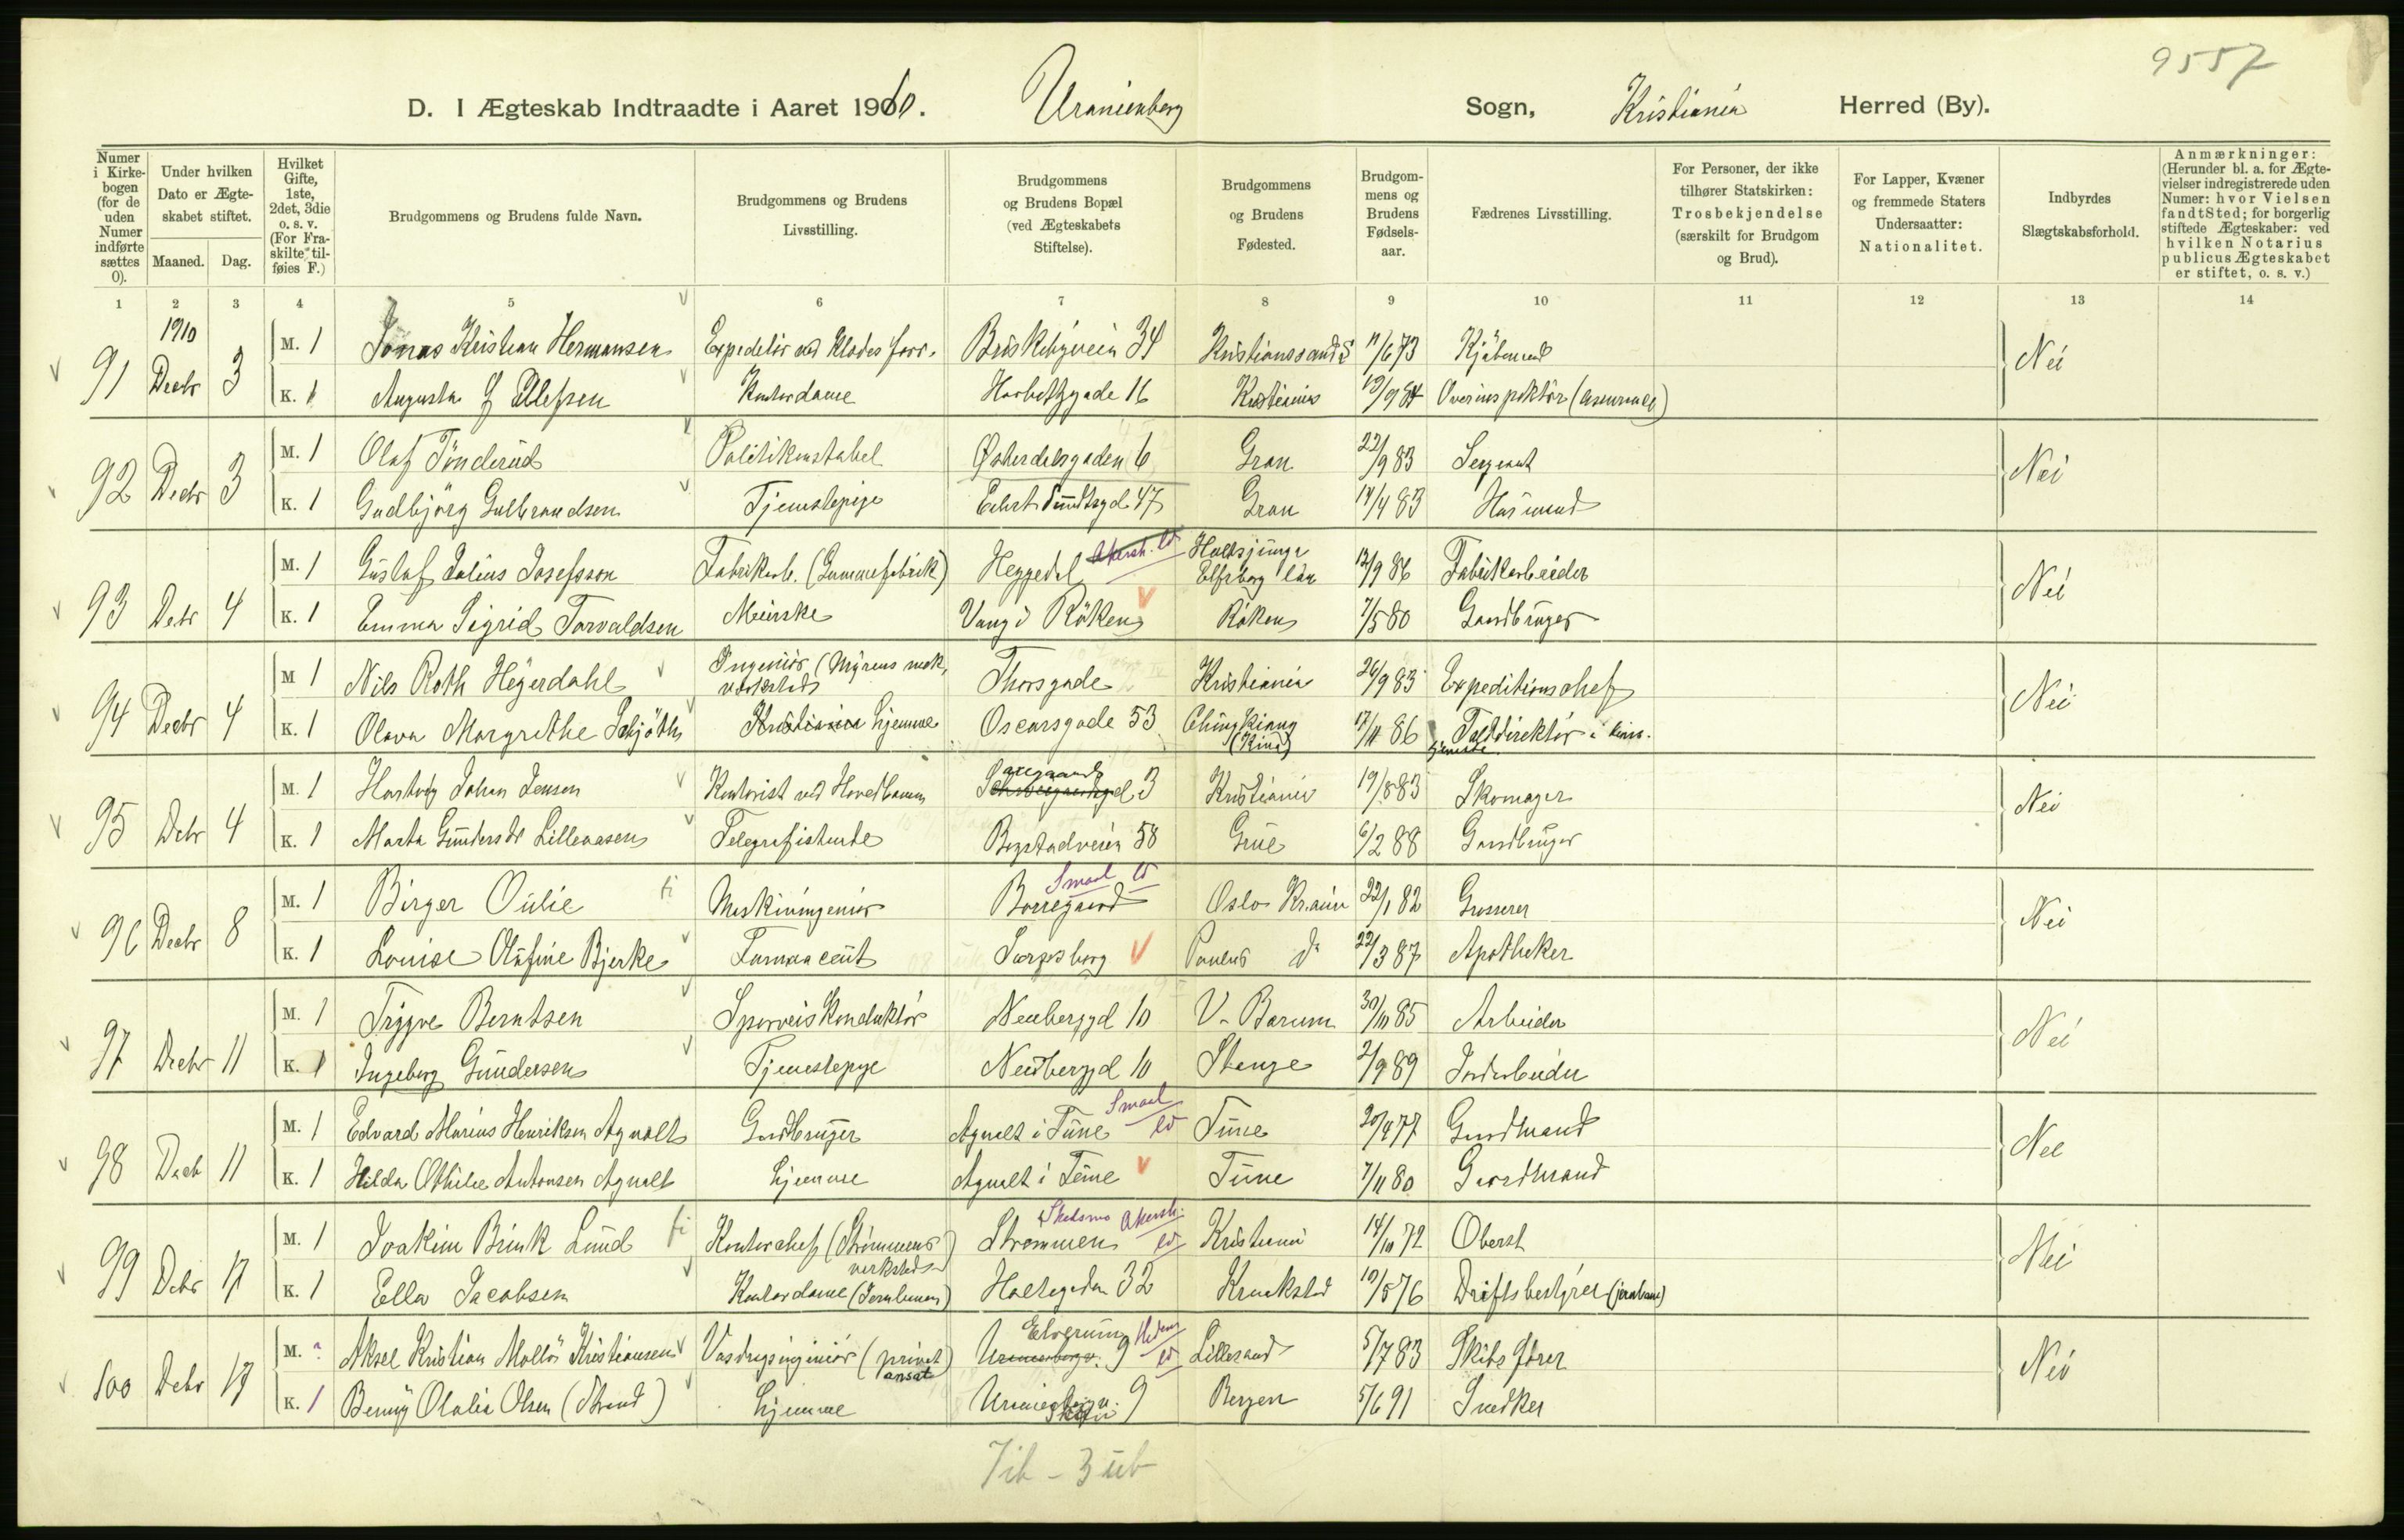 9557
D. I Ægteskab Indtraadte i Aaret 1910. Uranienborg Sogn, Kristiania Herred (By).
Numer i Kirkebogen (for de uden Numer indførte sættes 0).
Under hvilken Dato er Ægteskabet stiftet.
Maaned. Dag.
Hvilket Gifte, 1ste, 2det, 3die o. s. v. (For Fraskilte tilføies F.)
Brudgommens og Brudens fulde Navn.
Brudgommens og Brudens Livsstilling.
Brudgommens og Brudens Bopæl (ved Ægteskabets Stiftelse).
Brudgommens og Brudens Fødested.
Brudgommens og Brudens Fødselsaar.
Fædrenes Livsstilling.
For Personer, der ikke tilhører Statskirken: Trosbekjendelse (særskilt for Brudgom og Brud).
For Lapper, Kvæner og fremmede Staters Undersaatter: Nationalitet.
Indbyrdes Slægtskabsforhold.
Anmærkninger: (Herunder bl. a. for Ægtevielser indregistrerede uden Numer: hvor Vielsen fandt Sted; for borgerlig stiftede Ægteskaber: ved hvilken Notarius publicus Ægteskabet er stiftet, o. s. v.)
1 2 3 4 5 6 7 8 9 10 11 12 13 14
1910
91 Decbr 3 M. 1 Jonas Kristian Hermansen Expeditør ved Klædesforr. Briskebyveien 34 Kristianssand S 11/6 73 Kjøbmand Nei
K. 1 Augusta Ellefsen Kontordame 16 Kristiania 19/9 84 Overinspektør (assurance)
92 Decbr 3 M. 1 Olaf Tønderud Politikonstabel Østerdalsgaden 6 Gran 22/9 83 Sergeant Nei
K. 1 Gudbjørg Gulbrandsen Tjenestepige Eilert Sundtsgd 47 Gran 14/4 83 Husmand
93 Debr 4 M. 1 Gustaf Julius Josefsson Fabrikarb. (Gummifabrik) Heggedal Akersh. Ld Holtsjunga Elfsborg län 12/9 86 Fabrikarbeider Nei
K. 1 Emma Sigrid Torvaldsen Meierske Vang i Røken Røken 7/5 80 Gaardbruger
94 Decbr 4 M 1 Nils Roth Heyerdahl Ingeniør (Myrens mek. værksted) Thorsgade Kristiania 26/9 83 Expeditionschef Nei
K. 1 Olava Margrethe Schjøth Kristiania hjemme Oscarsgade 53 Ching Kiang (Kina) 17/11 86 Tolddirektør i kin. tjeneste
95 Debr 4 M. 1 Hartvig Johan Jensen Kontorist ved Hovedbanen 3 Kristiania 19/8 83 Skomager Nei
K. 1 Marta Gundersdr Lilleaasen Telegrafistinde Bogstadveien 58 Grue 6/2 88 Gaardbruger
96 Decbr 8 M. 1 Birger Oulie fi Maskiningeniør Borregaard Smaal Ld Oslo Kr.ania 22/1 82 Grosserer Nei
K. 1 Louise Olafine Bjerke Farmaceut Sarpsborg Paulus do 22/3 87 Apotheker
97 Decbr 11 M. 1 Trygve Berntsen Sporveiskonduktør Neuberggd 10 V. Bærum 30/10 85 Arbeider Nei
K. 1 Ingeborg Gundersen Tjenestepige Neuberggd 10 Stange 2/9 89 Jordarbeider
98 Decb 11 M. 1 Edvard Marius Henriksen Agnalt Gaardbruger Agnalt i Tune Smaal Ld Tune 20/4 77 Gaardmand Nei
K. 1 Hilda Othilie Antonsen Agnalt hjemme Agnalt i Tune Tune 7/11 80 Gaardmand
99 Debr 17 M. 1 Joakim Brink Lund fi Kontorchef (Strømmens verksted) Strømmen Skedsmo Akersh. Ld Kristiania 14/10 72 Oberst Nei
K. 1 Ella Jacobsen Kontordame (Jernbanen) Holtegaden 32 Krookstad 19/5 76 Driftsbestyrer (jernbane)
100 Debr 17 M. Aksel Kristian Kristiansen Vasdragsingeniør (privat ansat) Elverum Hedem Ld Uranienborgv. 9 Lillesand 5/7 83 Skibsfører Nei
K. 1 Benny Olalia Olsen (Strand) hjemme 9 Bergen 5/6 91 Snedker
7 ib - 3 ub